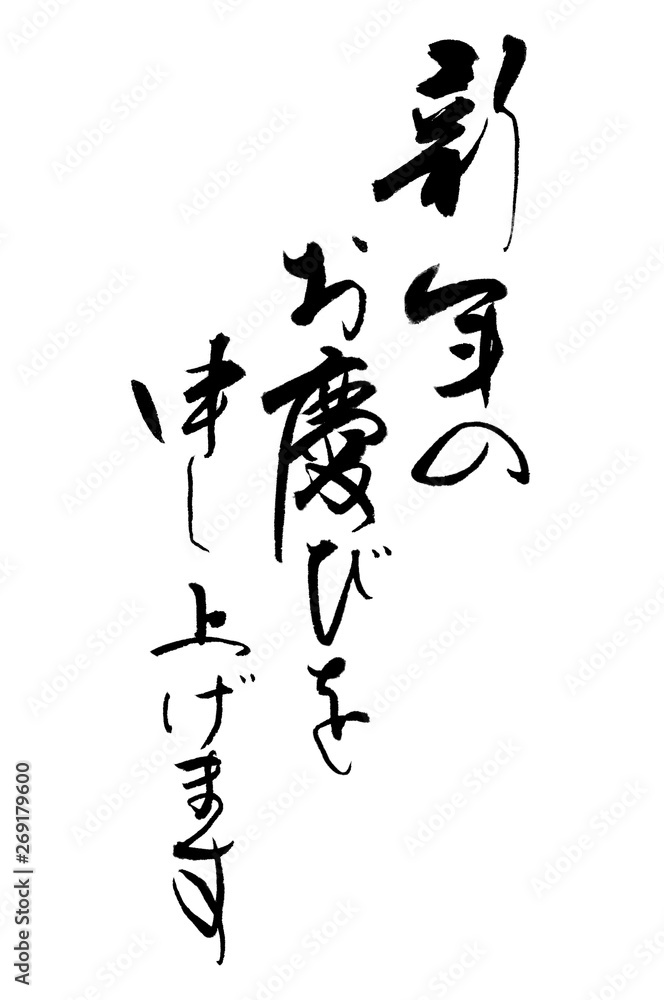 新年の
お慶びを
申し上げます
Adobe Stock | #269179600